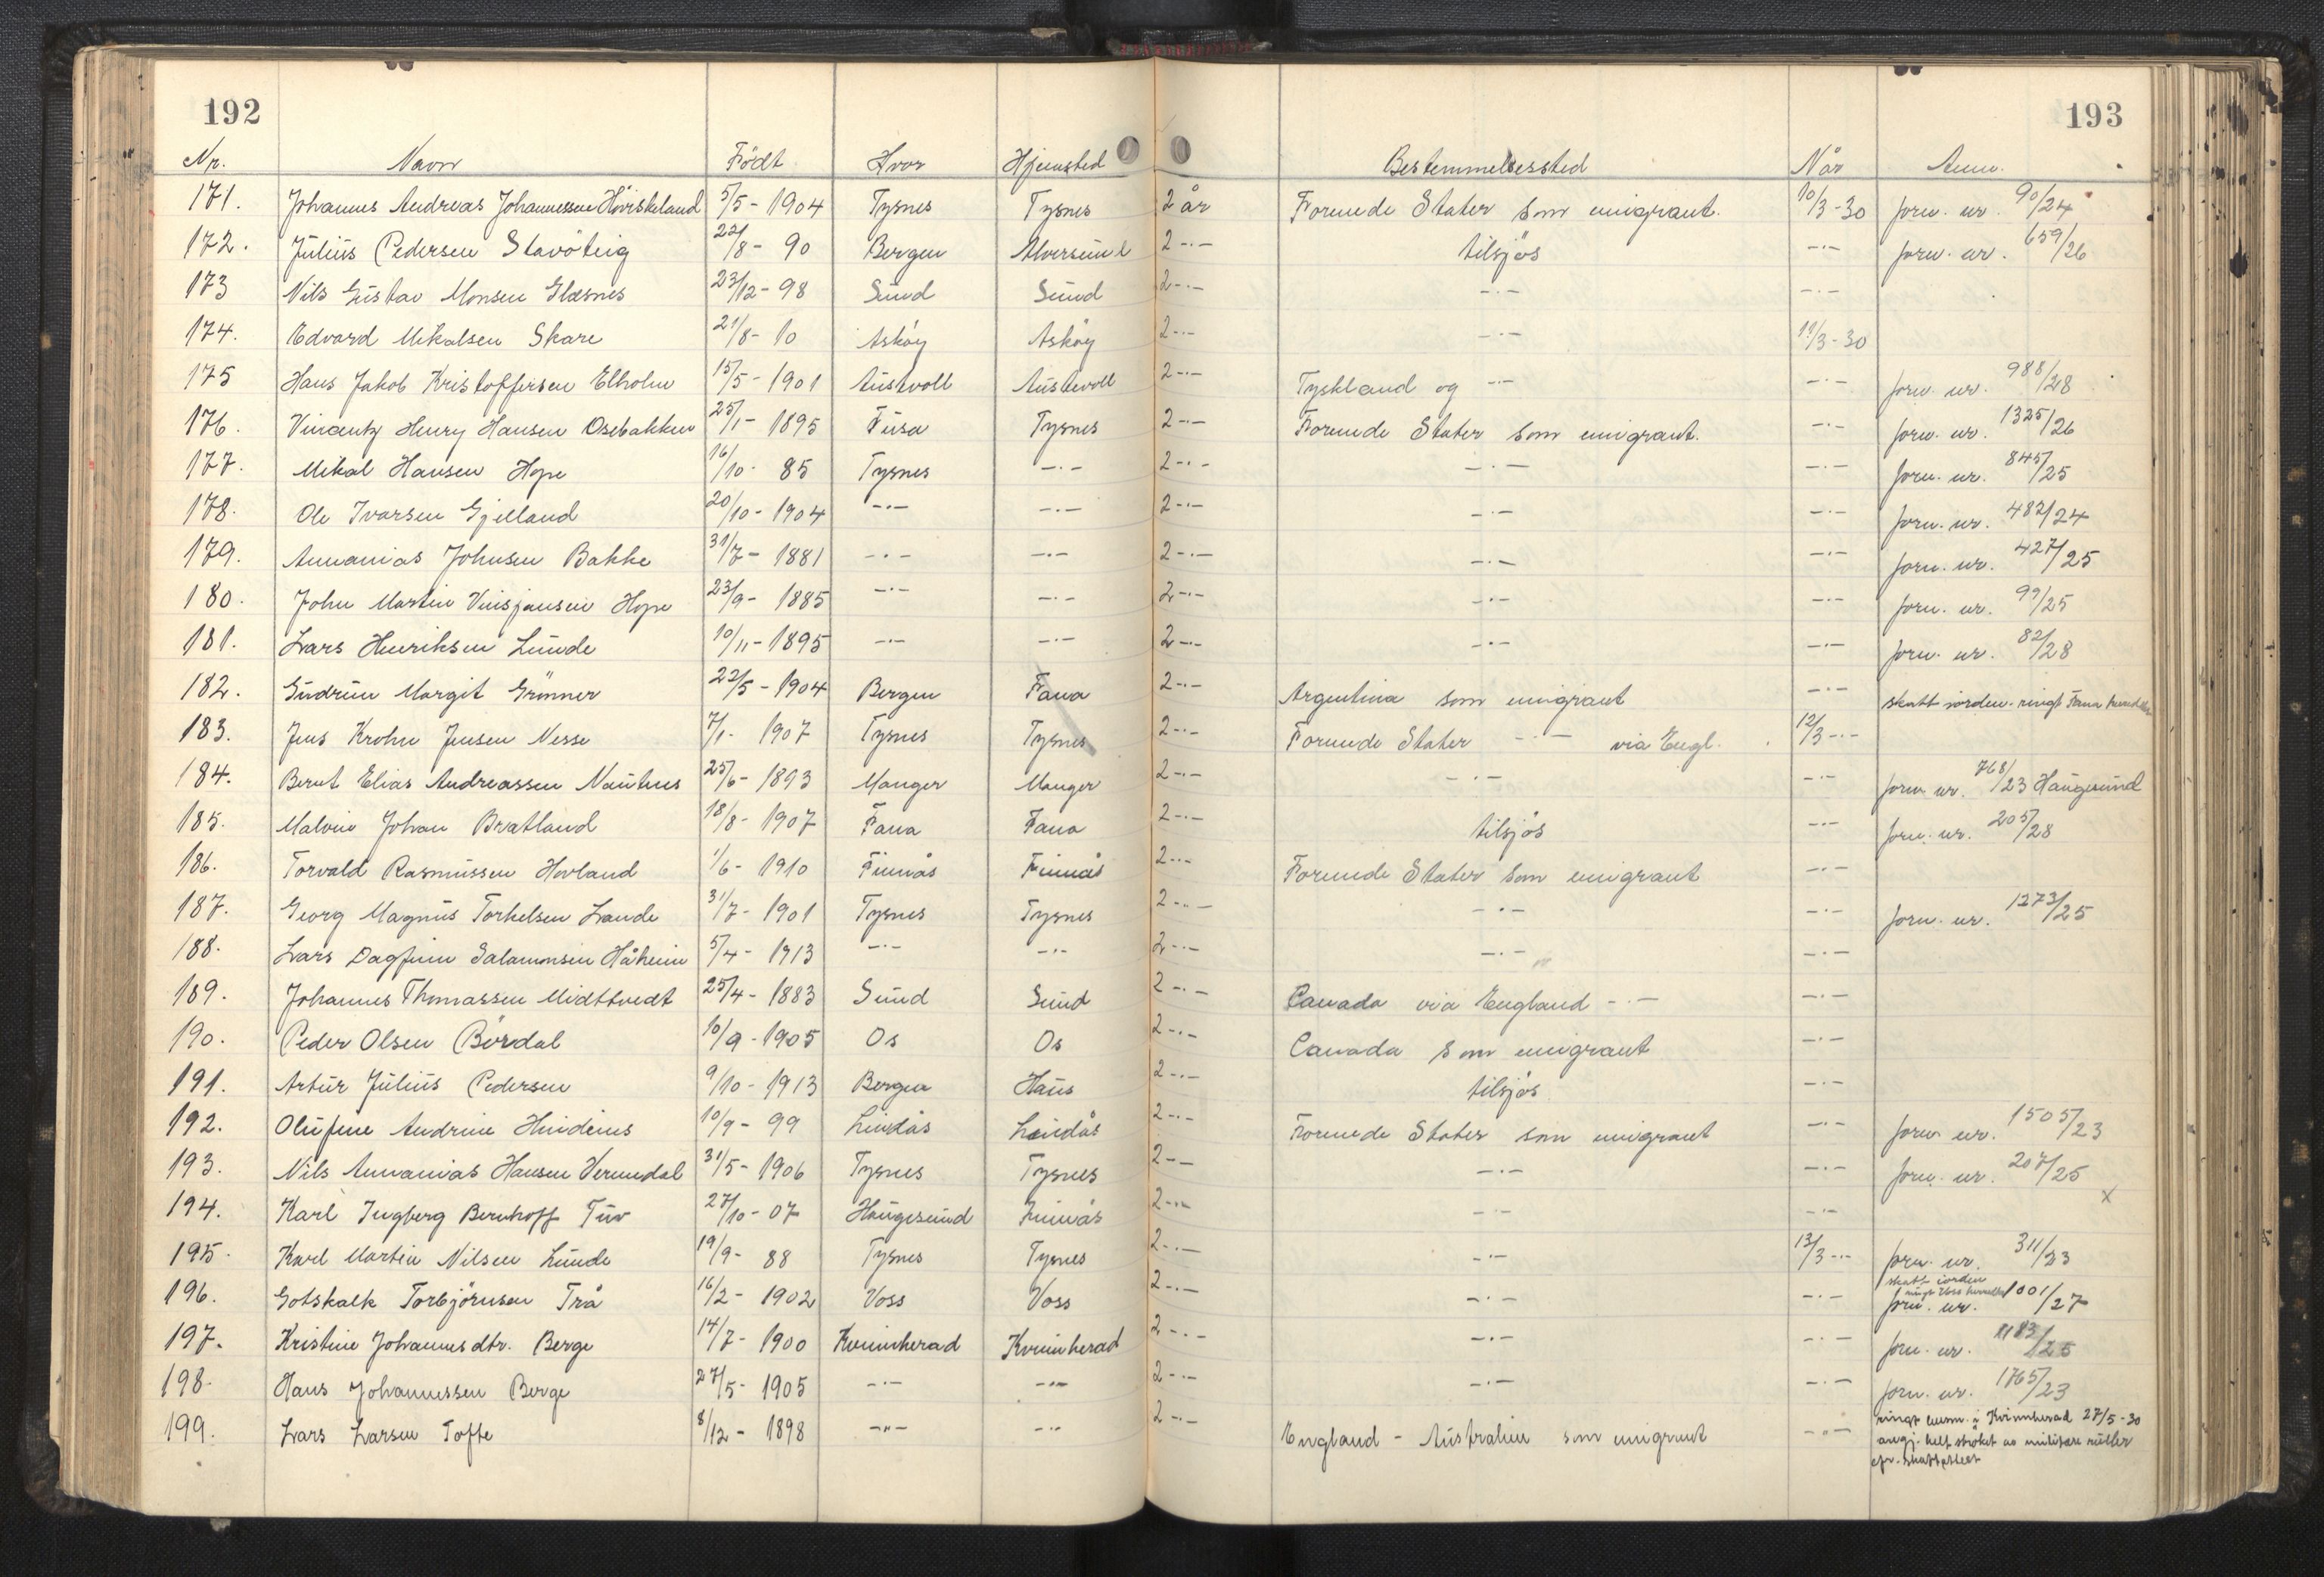 192
193
Nr. Navn Födt Hvor Hjemsted Bestemmelsessted Når Anm.
171. Johannes Andreas Johannessen Höviskeland 5/5 - 1904 Tysnes Tysnes 2 år Forenede Stater som emigrant. 10/3-30 forn. nr. 90/24
172. Julius Pedersen Stavöteig 22/8 - 90 Bergen Alversund 2 -·- tilsjös -·- forn. nr. 659/26
173 Nils Gustav Monsen Glesnes 23/12 - 98 Sund Sund 2 -·- -·- -·-
174. Edvard Mikalsen Skare 21/8 - 10 Asköy Asköy 2 -·- -·- 11/3-30
175 Hans Jakob Kristoffersen Elholm 15/5 - 1901 Austevoll Austevoll 2 -·- Tyskland og -·- -·- forn. nr. 988/28
176. Vincentz Henry Hansen Osebakken 25/1 - 1895 Fusa Tysnes 2 -·- Forenede Stater som emigrant. -·- forn. nr. 1325/26
177. Mikal Hansen Hope 16/10 - 85 Tysnes -·- 2 -·- -·- -·- forn. nr. 845/25
178. Ole Ivarsen Gjelland 20/10 - 1904 -·- -·- 2 -·- -·- -·- forn. nr. 482/24
179. Annanias Johnsen Bakke 31/7 - 1881 -·- -·- 2 -·- -·- -·- forn. nr. 427/25
180. John Martin Vinsjansen Hope 23/9 - 1885 -·- -·- 2 -·- -·- -·- forn. nr. 99/25
181. Lars Henriksen Lunde 10/11 - 1895 -·- -·- 2 -·- -·- -·- forn. nr. 82/28
182. Gudrun Margit Grönner 22/5 - 1904 Bergen Fana 2 -·- Argentina som emigrant -·- skatt iorden. ringt Fana
183. Jens Krohn Jensen Nesse 7/1 - 1907 Tysnes Tysnes 2 -·- Forenede Stater -·- via Engl. 12/3 -·-
184. Bernt Elias Andreassen Nautnes 25/6 - 1893 Manger Manger 2 -·- -·- -·- forn nr. 768/23 Haugesund
185. Malvin Johan Bratland 18/8 - 1907 Fana Fana 2 -·- tilsjös -·- forn. nr. 205/28
186. Torvald Rasmussen Hovland 1/6 - 1910 Finnås Finnås 2 -·- Forenede Stater som emigrant -·-
187. Georg Magnus Torkelsen Lande 31/7 - 1901 Tysnes Tysnes 2 -·- -·- -·- forn. nr. 1273/25
188. Lars Dagfinn Salamonsen Håheim 5/4 - 1913 -·- -·- 2 -·- -·- -·-
189. Johannes Thomassen Midttvedt 25/4 - 1883 Sund Sund 2 -·- Canada via England -·- -·-
190. Peder Olsen Bördal 10/9 - 1905 Os Os 2 -·- Canada som emigrant -·-
191. Artur Julius Pedersen 9/10 - 1913 Bergen Haus 2 -·- tilsjös -·-
192. Olufine Andrine Hindenes 10/9 - 99 Lindås Lindås 2 -·- Forenede Stater som emigrant -·- forn nr. 1505/23
193. Nils Annanias Hansen Vermedal 31/5 - 1906 Tysnes Tysnes 2 -·- -·- -·- forn. nr. 207/25
194. Karl Ingberg Bernhoff Tuv 27/10 - 07 Haugesund Finnås 2 -·- -·- -·- x
195. Karl Martin Nilsen Lunde 19/9 - 88 Tysnes Tysnes 2 -·- -·- 13/3 -·- forn. nr. 311/23
196. Gotskalk Torbjörnsen Trå 16/2 - 1902 Voss Voss 2 -·- -·- -·- skatt iorden ringt Voss
forn. nr. 1001/27
197. Kristine Johannesdtr. Berge 14/7 - 1900 Kvinnherad Kvinnherad 2 -·- -·- -·- forn. nr. 1183/25
198. Hans Johannessen Berge 27/5 - 1905 -·- -·- 2 -·- -·- -·- forn. nr. 1765/23
199. Lars Larsen Tofte 8/12 - 1898 -·- -·- 2 -·- England - Australien som emigrant -·- ringt lensm. i Kvinnherad 27/5-30
angj. helt ströket av militære ruller